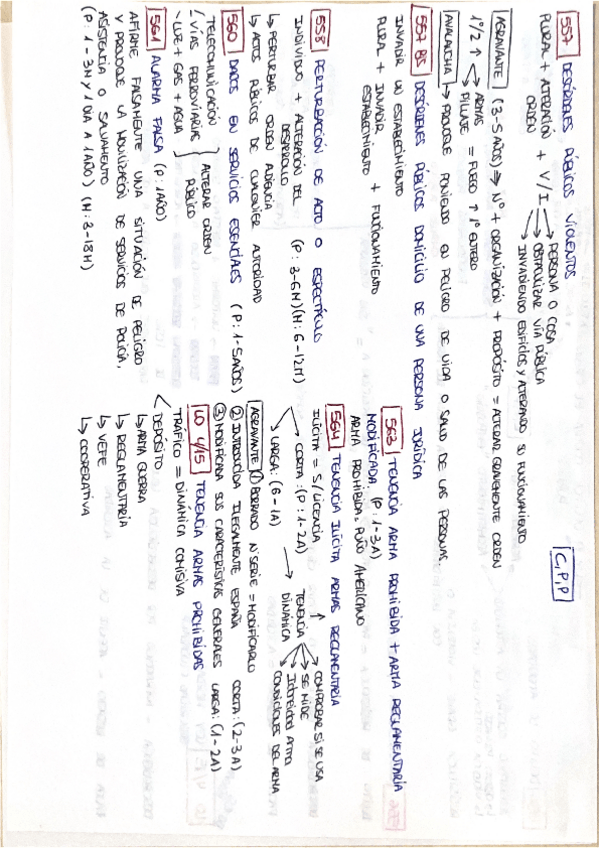 C,P,P
557 DESÓRDENES PÚBLICOS VIOLENTOS
PLURAL + ALTERACIÓN + V/I → PERSONA O COSA
ORDEN → OBSTACULIZAR VÍA PÚBLICA
→ INVADIENDO EDIFICIOS Y ALTERANDO SU FUNCIONAMIENTO
AGRAVANTE (3-5 AÑOS) ⇒ Nº + ORGANIZACIÓN + PROPÓSITO = ALTERAR GRAVEMENTE ORDEN
1º/2 ↑ → ARMAS
→ PILLAJE = FUEGO ↑ 1º ENTERO
AVALACHA → PROVOQUE PONIENDO EN PELIGRO DE VIDA O SALUD DE LAS PERSONAS.
557 BIS DESÓRDENES PÚBLICOS DOMICILIO DE UNA PERSONA JURÍDICA
INVADIR UN ESTABLECIMIENTO
PLURAL + INVADIR + FUNCIONAMIENTO
ESTABLECIMIENTO
558 PERTURBACIÓN DE ACTO O ESPECTÁCULO
INDIVIDUO + ALTERACIÓN DEL (P: 3-6M)(M: 6-12M)
DESARROLLO
↳ PERTURBAR ORDEN AUDIENCIA
↳ ACTOS PÚBLICOS DE CUALQUIER AUTORIDAD
560 DAÑOS EN SERVICIOS ESENCIALES (P: 1-5AÑOS)
TELECOMUNICACIÓN
VÍAS FERROVIARIAS } ALTERAR ORDEN
LUZ + GAS + AGUA PÚBLICO
561 ALARMA FALSA (P: 1AÑO)
AFIRME FALSAMENTE UNA SITUACIÓN DE PELIGRO
Y PROVOQUE LA MOVILIZACIÓN DE SERVICIOS DE POLICÍA,
ASISTENCIA O SALVAMENTO
(P: 1-3M Y 1 DÍA A 1 AÑO) (M: 3-18M)
563 TENENCIA ARMA PROHIBIDA + ARMA REGLAMENTARIA
MODIFICADA (P: 1-3A)
ARMA PROHIBIDA: PUÑO AMERICANO
564 TENENCIA ILÍCITA ARMAS REGLAMENTARIA
ILÍCITA = S/LICENCIA
→ CORTA: (P: 1-2A)
→ LARGA: (6-1A)
TENENCIA DINÁMICA → COMPROBAR SI SE USA
→ SE MIDE
→ Idoneidad Arma
→ CONDICIONES DEL ARMA
AGRAVANTE ① BORRADO N SERIE = MODIFICARLO
② INTRODUCIDA ILEGALMENTE ESPAÑA CORTA: (2-3A)
③ MODIFICADA SUS CARACTERÍSTICAS GENERALES LARGA: (1-2A)
LO 4/15 TENENCIA ARMAS PROHIBIDAS
TRÁFICO = DINÁMICA COMISIVA
DEPÓSITO
↳ ARMA GUERRA
↳ REGLAMENTARIA
↳ VEFE
↳ COOPERATIVA